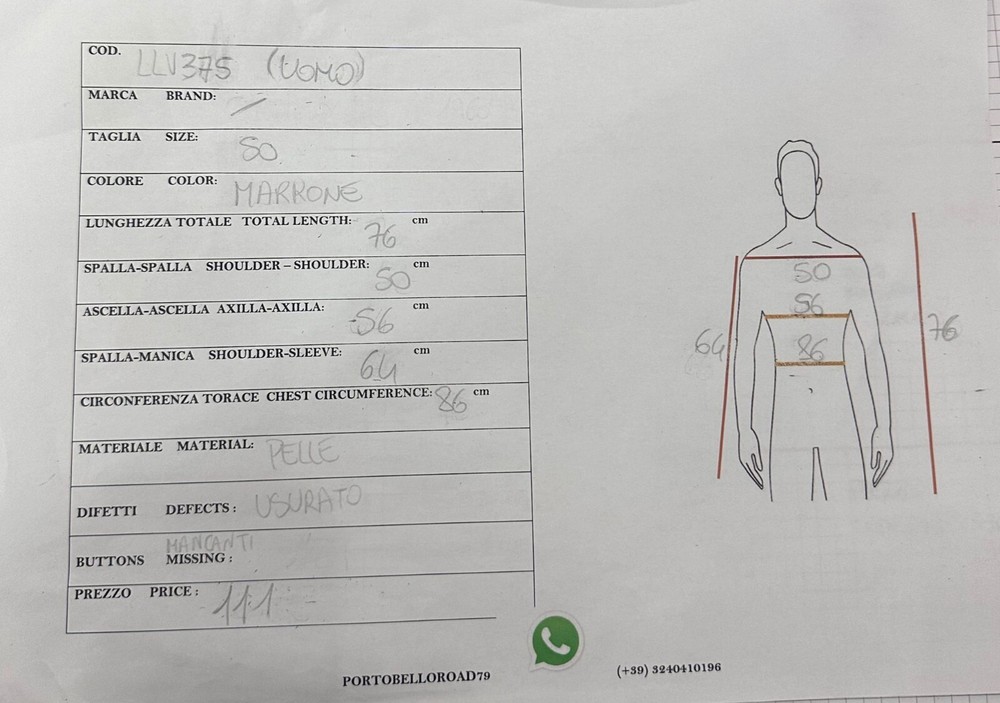 COD. LLV375 (UOMO)
MARCA BRAND: /
TAGLIA SIZE: 50
COLORE COLOR: MARRONE
LUNGHEZZA TOTALE TOTAL LENGTH: 76 cm
SPALLA-SPALLA SHOULDER – SHOULDER: 50 cm
ASCELLA-ASCELLA AXILLA-AXILLA: 56 cm
SPALLA-MANICA SHOULDER-SLEEVE: 64 cm
CIRCONFERENZA TORACE CHEST CIRCUMFERENCE: 86 cm
MATERIALE MATERIAL: PELLE
DIFETTI DEFECTS: USURATO
MANCANTI
BUTTONS MISSING:
PREZZO PRICE: 111
50
56
64
86
76
PORTOBELLOROAD79
(+39) 3240410196